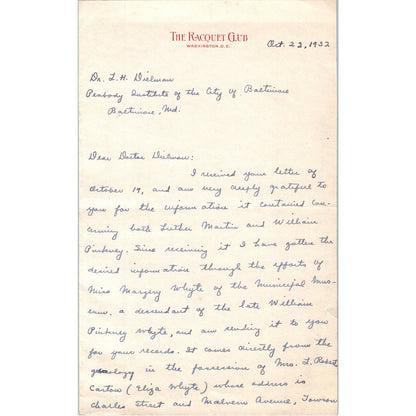 THE RACQUET CLUB
WASHINGTON, D.C.
Oct. 22, 1932
Dr. L. H. Dielman
Peabody Institute of the City of Baltimore
Baltimore, Md.
Dear Doctor Dielman:
I received your letter of
October 19, and am very deeply grateful to
you for the information it contained con-
cerning both Luther Martin and William
Pinkney. Since receiving it I have gotten the
desired information through the efforts of
Miss Margery Whyte of the Municipal Mus-
eum, a descendant of the late William
Pinkney Whyte, and am sending it to you
for your records. It comes directly from the
in the possession of Mrs. L. Robert
(Eliza Whyte) whose address is
Charles Street and Malvern Avenue, Towson